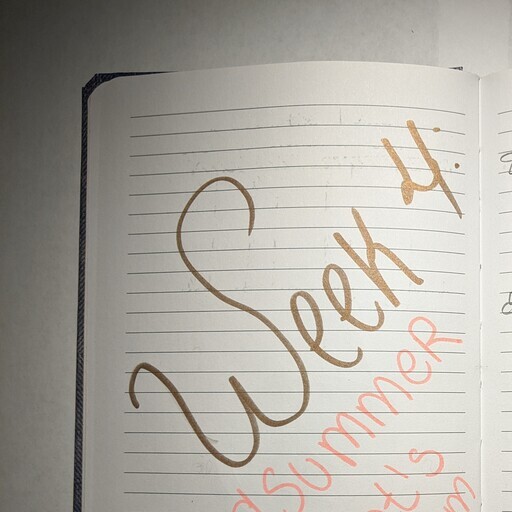 Week 4:
dSummer
t's
m